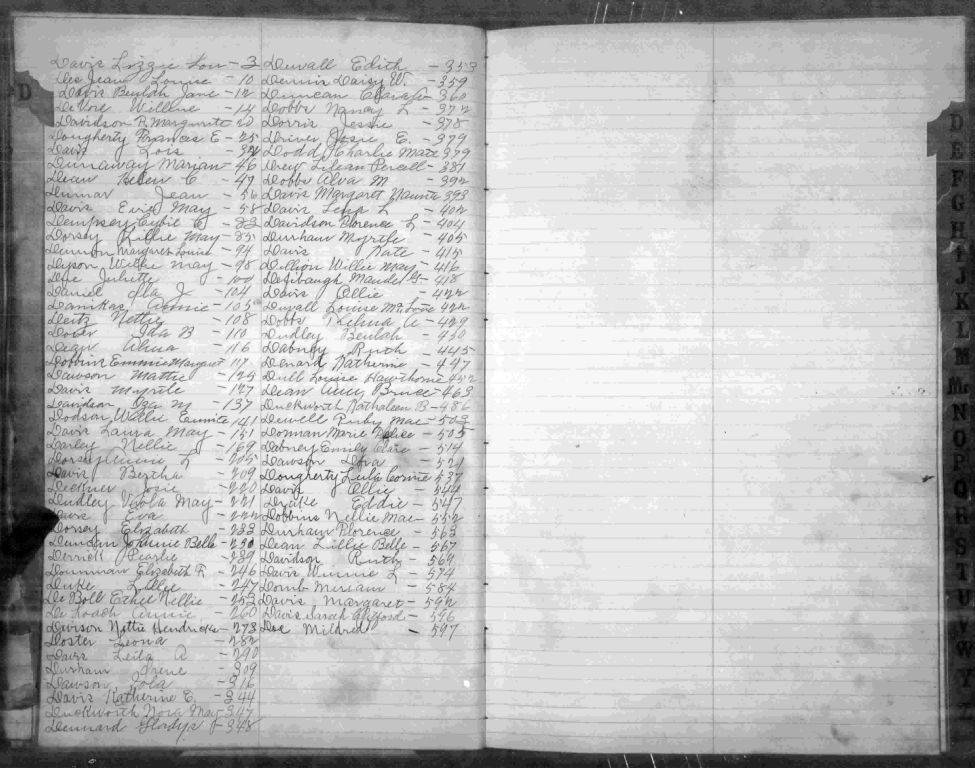 D
Davis Lizzie Lou - 3
Des Jean Louise - 10
Davis Beulah Jane - 12
DeVore Willene - 14
Davidson R. Marguerite - 20
Dougherty Frances E - 25
Davis Lois -
Dunaway Marian - 46
Dean Helen C - 49
Denmar Jean - 56
Davis Evie May - 58
Dempsey E - 83
Dorsey Lillie May - 85
Dennon Margaret Louise - 94
Dyson Willie May - 98
Doe Juliette - 101
Daniel Ila J - 104
Danikas - 105
Deitz Nettie - 108
Dover Ida B - 110
Dean Alma - 116
Dobbins Emmie Margaret 117
Dawson Mattie - 125
Davis Myrtle - 127
Davidson Ora M - 137
Dodson Willie Eunice 141
Davis Laura May - 151
Darley Nellie - 169
Dorsey L - 205
Davis Bertha - 209
Deckner Josie - 220
Dudley Viola May - 221
Davis Eva - 222
Dorsey Elizabeth - 233
Duncan Johnnie Belle - 230
Derrick Pearlie - 239
Dunman Elizabeth F. - 246
Duke Lillie - 247
De Boll Ethel Nellie - 253
De Loach Annie - 260
Davison Nettie Hendricks - 273
Doster Leona - 282
Davis Leila A - 290
Durham Irene - 309
Dawson Lola - 316
Davis Katherine E. - 344
Duckworth Nora May - 347
Dennard Gladys - 348
Dewall Edith - 353
Dennis Daisy W. - 359
Duncan Clara - 360
Dobbs Nancy L - 372
Dorris Jessie - 378
Driver Josie E. - 379
Dodd Charlie Mate 379
Drew Lilean Percell - 387
Dobbs Alva M - 392
Davis Margaret Naunte 393
Davis Lena L - 402
Davidson Florence L - 404
Durham Myrtle - 405
Davis Kate - 415
Dillion Willie May - 416
Defibaugh Maudel G - 418
Davis Ollie - 422
Duvall Louise - 422
Dobbs Thelma A - 429
Dudley Beulah - 430
Dabney Ruth - 445
Denard Katherine - 447
Dull Louise Hawthorne 452
Dean Alice Bruce - 463
Duckworth Kathaleen B - 486
Dewell Ruby Mae - 503
Dorman Marie - 505
Dabney Emily Clare - 514
Dawson Dora - 521
Dougherty Lula Connie 537
Davis Ollie - 544
Drake Eddie - 547
Dobbins Nellie Mae - 552
Durham Florence - 563
Dean Lillie Belle - 567
Davidson Ruth - 569
Davis Winnie L - 574
Domb Miriam - 584
Davis Margaret - 592
Davis Sarah - 596
Doe Mildred - 597
D
E
F
G
H
I
J
K
L
M
Mc
N
O
P
Q
R
S
T
U
V
W
Y